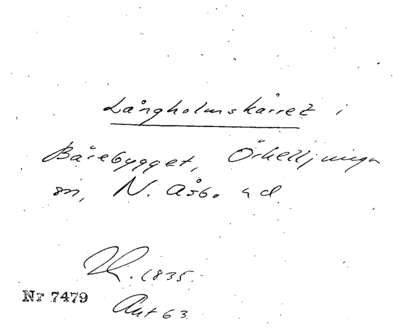 Långholmskärret i
Bårebygget, Örkelljunga
sn, N. Åsbo hd
1835.
Nr 7479
Akt 63.